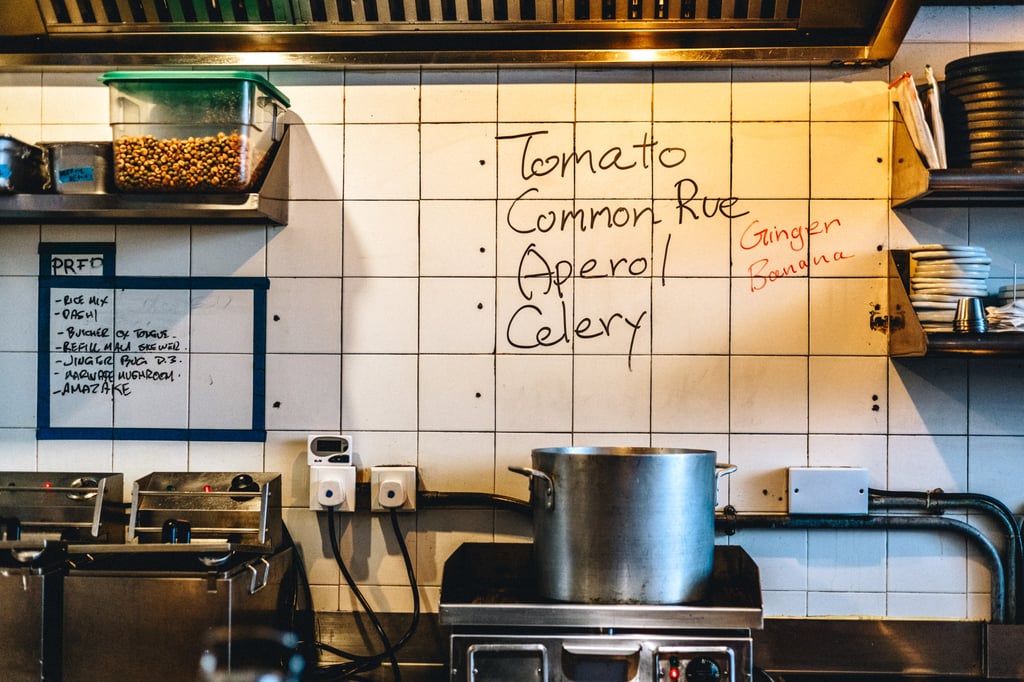 PREP
- RICE MIX
- DASHI
- BUTCHER OX TONGUE.
- REFILL MALA SKEWER.
- JINGER BUG D.3.
- MARINATE MUSHROOM.
- AMAZAKE
Tomato
Common Rue
Aperol
Celery
Ginger
Banana